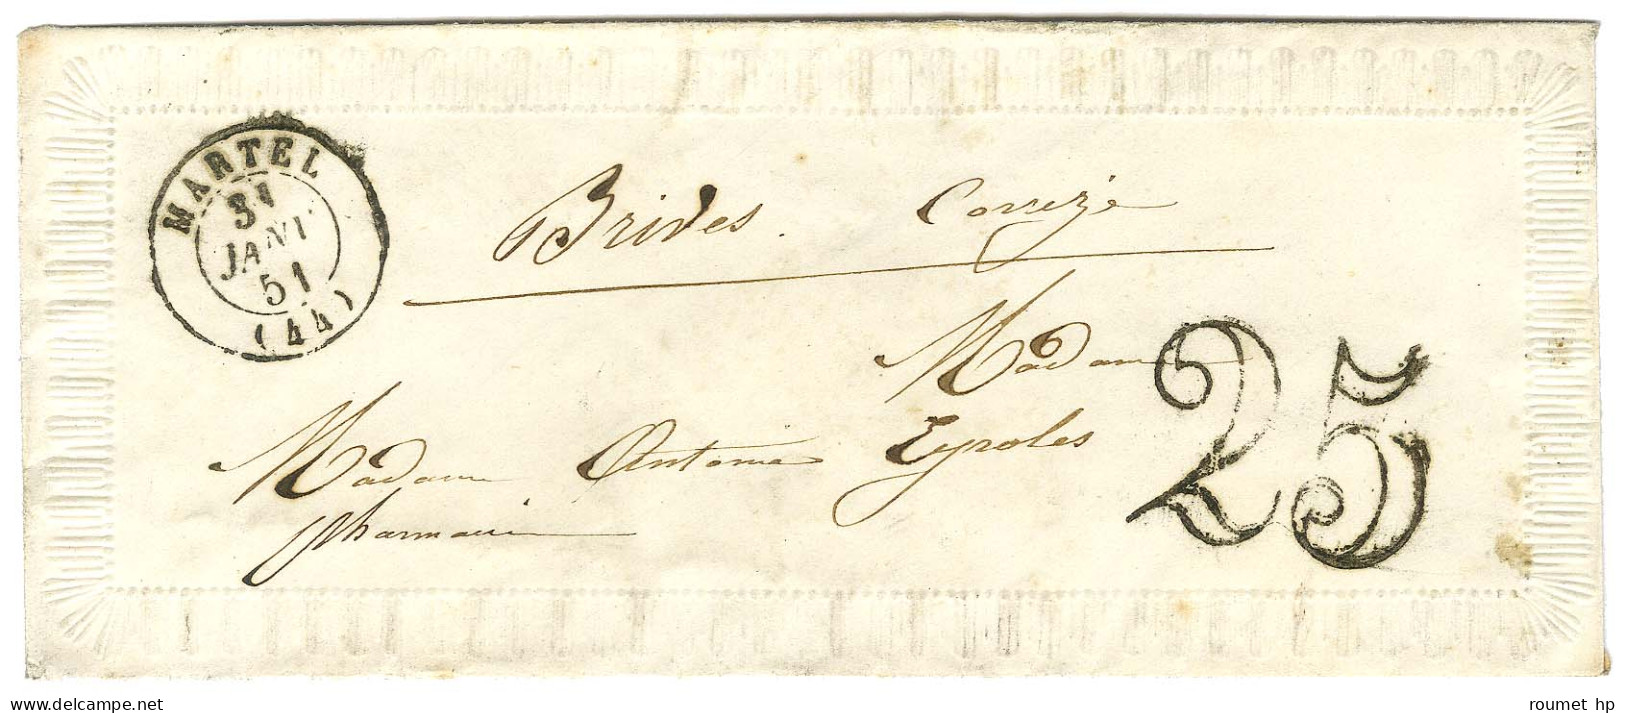 MARTEL
31
JANV
51
(44)
Brives. Corrèze
Madame
Madame Antoine Eyroles
pharmacie
25
www.delcampe.net
roumet hp